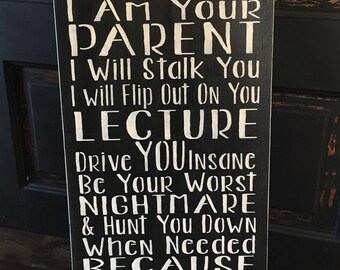 I Am Your
PARENT
I Will Stalk You
I will Flip Out On You
LECTURE
Drive YOU Insane
Be Your Worst
NIGHTMARE
& Hunt You Down
When Needed
BECAUSE